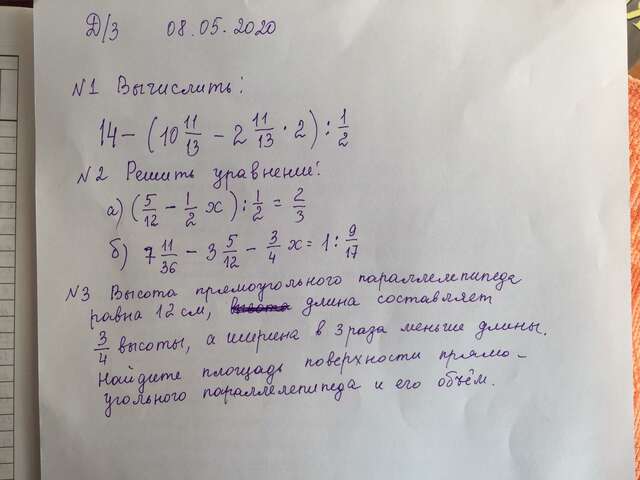 Д/З 08.05.2020
N1 Вычислить:
14 - (10 11/13 - 2 11/13 · 2) : 1/2
N2 Решить уравнение:
а) (5/12 - 1/2 x) : 1/2 = 2/3
б) 7 11/36 - 3 5/12 - 3/4 x = 1 : 9/17
N3 Высота прямоугольного параллелепипеда
равна 12 см, длина составляет
3/4 высоты, а ширина в 3 раза меньше длины.
Найдите площадь поверхности прямо-
угольного параллелепипеда и его объём.